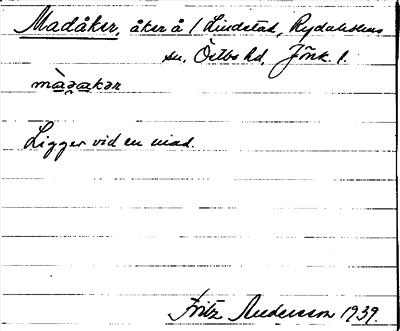 Madåker, åker å 1 Lindstad, Rydaholms
sn, Östbo hd, Jönk. l.
Ligger vid en mad.
Fritz Andersson 1939.